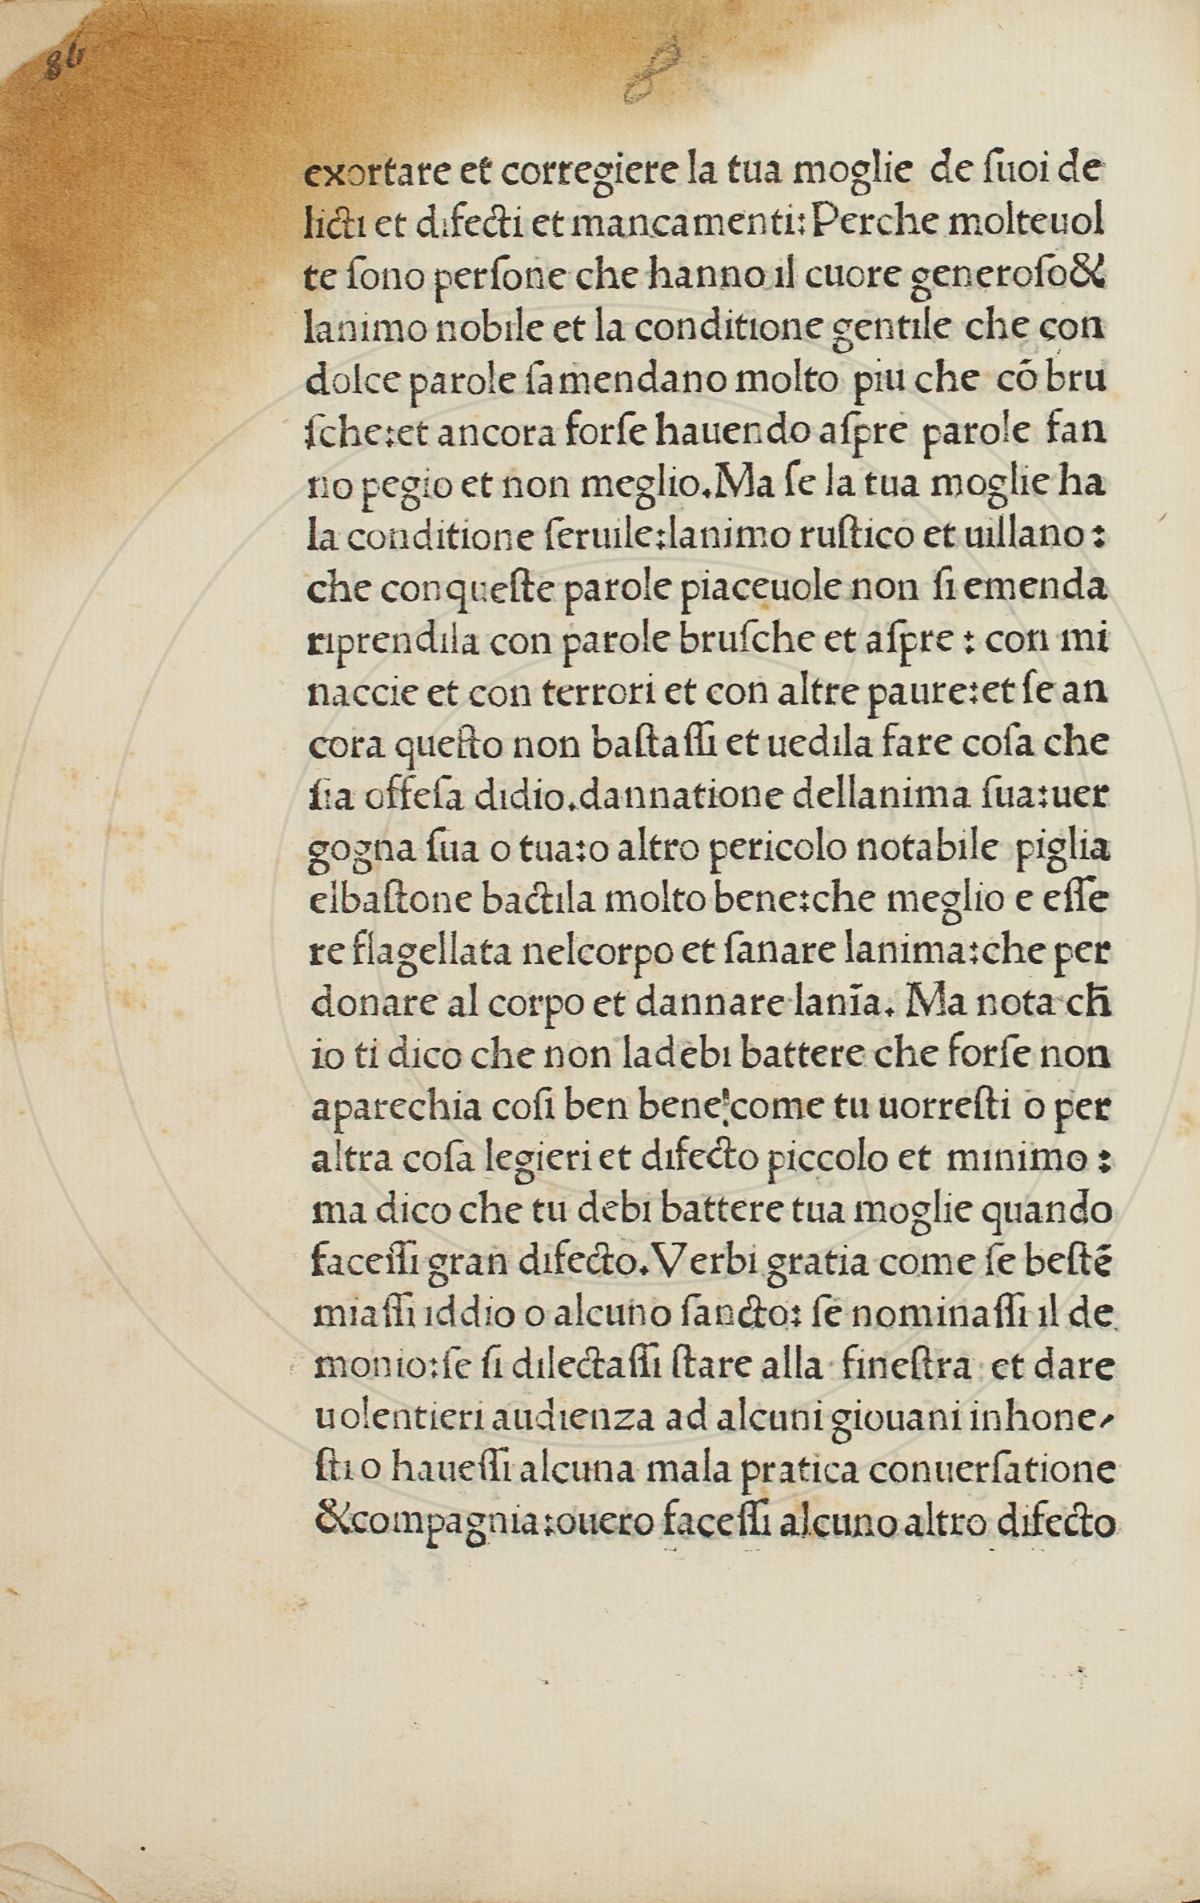 84
8
exortare et corregiere la tua moglie de ſuoi de
licti et difecti et mancamenti: Perche molteuol
te ſono perſone che hanno il cuore generoſo &
lanimo nobile et la conditione gentile che con
dolce parole ſamendano molto piu che cō bru
ſche: et ancora forſe hauendo aſpre parole fan
no pegio et non meglio. Ma ſe la tua moglie ha
la conditione ſeruile: lanimo ruſtico et uillano :
che con queſte parole piaceuole non ſi emenda
riprendila con parole bruſche et aſpre : con mi
naccie et con terrori et con altre paure: et ſe an
cora queſto non baſtaſſi et uedila fare coſa che
ſia offeſa didio. dannatione dellanima ſua: uer
gogna ſua o tua: o altro pericolo notabile piglia
elbaſtone bactila molto bene: che meglio e eſſe
re flagellata nelcorpo et ſanare lanima: che per
donare al corpo et dannare lanīa. Ma nota ch̄
io ti dico che non ladebi battere che forſe non
aparechia coſi ben bene: come tu uorreſti o per
altra coſa legieri et difecto piccolo et minimo :
ma dico che tu debi battere tua moglie quando
faceſſi gran difecto. Verbi gratia come ſe beſtē
miaſſi iddio o alcuno ſancto: ſe nominaſſi il de
monio: ſe ſi dilectaſſi ſtare alla fineſtra et dare
uolentieri audienza ad alcuni giouani inhone-
ſti o haueſſi alcuna mala pratica conuerſatione
& compagnia: ouero faceſſi alcuno altro difecto